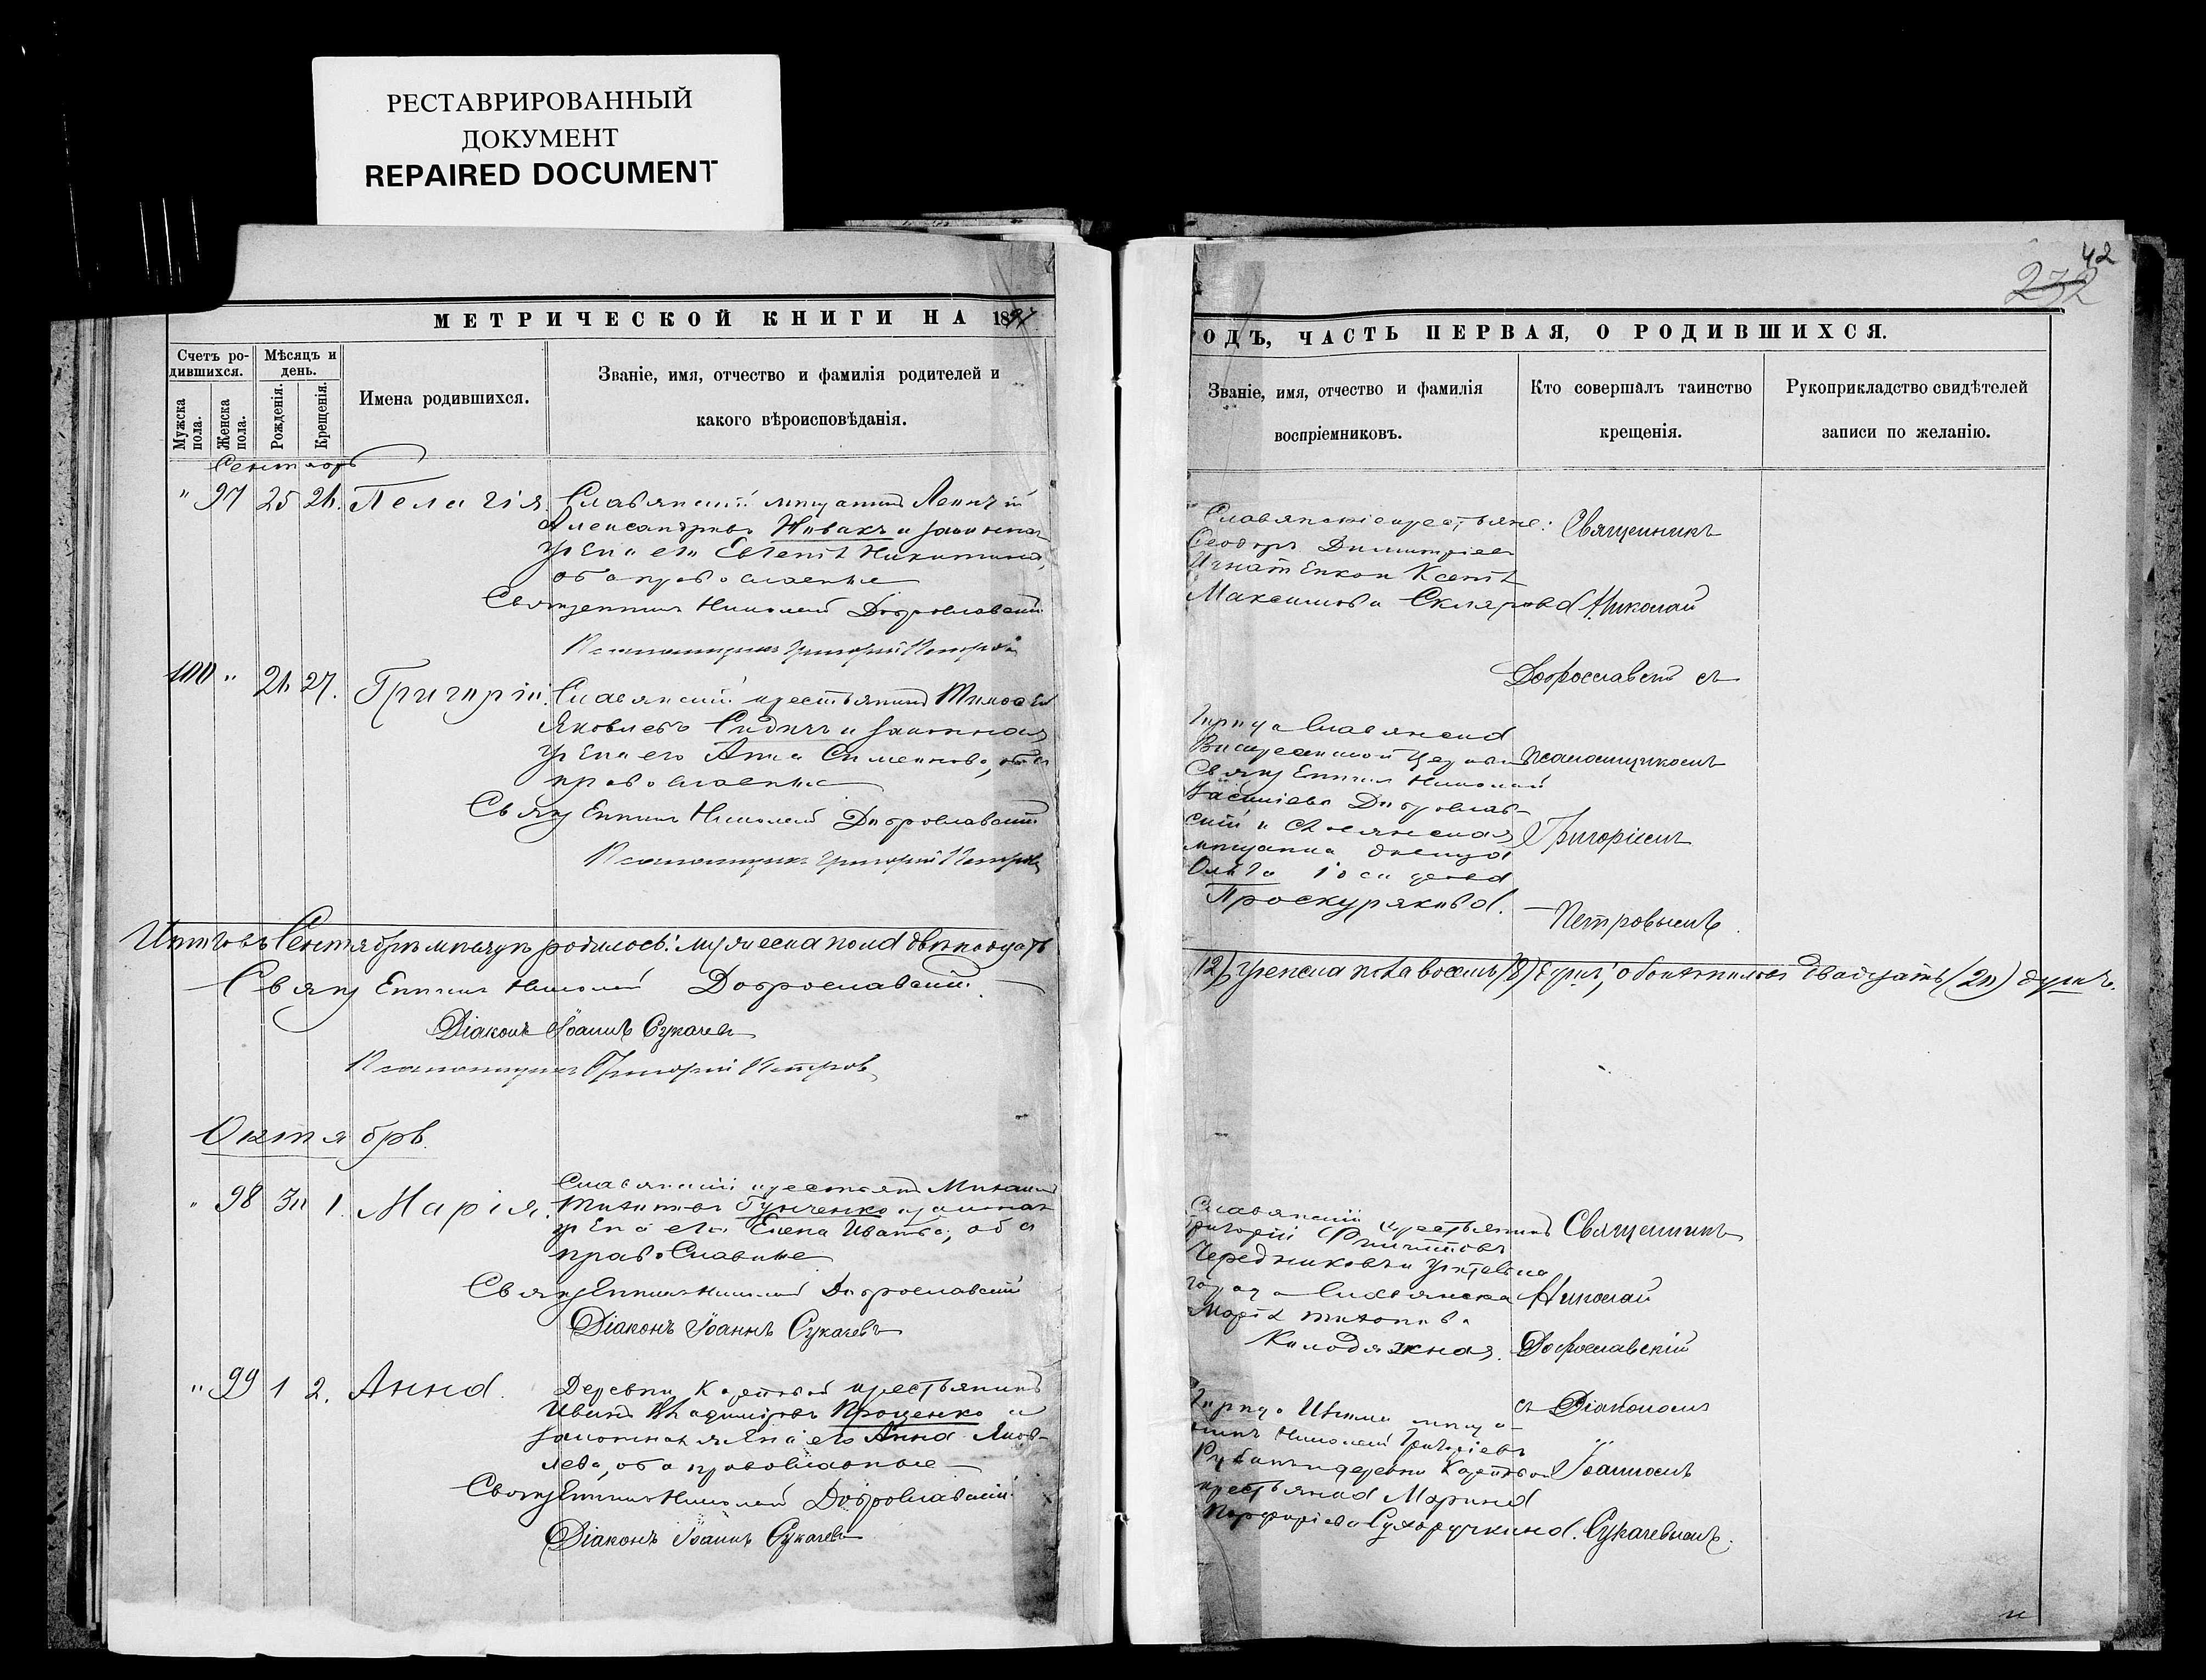 РЕСТАВРИРОВАННЫЙ
ДОКУМЕНТ
REPAIRED DOCUMENT
МЕТРИЧЕСКОЙ КНИГИ НА 1891
Счетъ ро-
дившихся.
Мѣсяцъ и
день.
Мужска
пола.
Женска
пола.
Рожденія.
Крещенія.
Имена родившихся.
Званіе, имя, отчество и фамилія родителей и
какого вѣроисповѣданія.
Сентябрь
" 97 25 26. Пелагія. Славянскій мѣщанинъ
Александровъ Новакъ и законная
жена его Евгенія Никитина,
оба православные
Священникъ Николай Доброславскій
Псаломщикъ Григорій Петровъ
100 " 26 27. Григорій. Славянскій крестьянинъ Тимоѳей
Яковлевъ Сидичъ и законная
жена его Анна Симеонова, оба
православные
Священникъ Николай Доброславскій
Псаломщикъ Григорій Петровъ
Итого въ Сентябрѣ мѣсяцѣ родилось: мужеска пола двѣнадцать
Священникъ Николай Доброславскій
Діаконъ Іоаннъ Сукачевъ
Псаломщикъ Григорій Петровъ
Октябрь.
" 98 30 1. Марія. Славянскій крестьянинъ Михаилъ
Тихоновъ Гунченко и законная
жена его Елена Иванова, оба
православные
Священникъ Николай Доброславскій
Діаконъ Іоаннъ Сукачевъ
" 99 1 2. Анна. Деревни Карповой крестьянинъ
Иванъ Владиміровъ Проценко и
законная жена его Анна Яков-
лева, оба православные
Священникъ Николай Доброславскій
Діаконъ Іоаннъ Сукачевъ
42
232
ОДЪ, ЧАСТЬ ПЕРВАЯ, О РОДИВШИХСЯ.
Званіе, имя, отчество и фамилія
воспріемниковъ.
Кто совершалъ таинство
крещенія.
Рукоприкладство свидѣтелей
записи по желанію.
Славянскіе крестьяне:
Ѳеодоръ Димитріевъ
Игнатенко и Ксенія
Максимова Склярова
Священникъ
Николай
Доброславскій съ
псаломщикомъ
Григоріемъ
Петровымъ
Города Славянска
Воскресенской Церкви
Священникъ Николай
Васильевъ Доброслав-
скій и Славянская
мѣщанка девица
Ольга
Проскурякова.
(12), женска пола восемь (8) а всего обоего пола двадцать (20) душъ.
Славянскій крестьянинъ
Григорій Филипповъ
Чередниковъ и жителька
города Славянска
Марія Тихонова
Колодяжная.
Священникъ
Николай
Доброславскій
съ Діакономъ
Іоанномъ
Сукачевымъ.
Города Изюма мѣща-
нинъ Николай Григорьевъ
Рубанъ и деревни Карповой
крестьянка Марина
Порфирьева Сухоручкина.